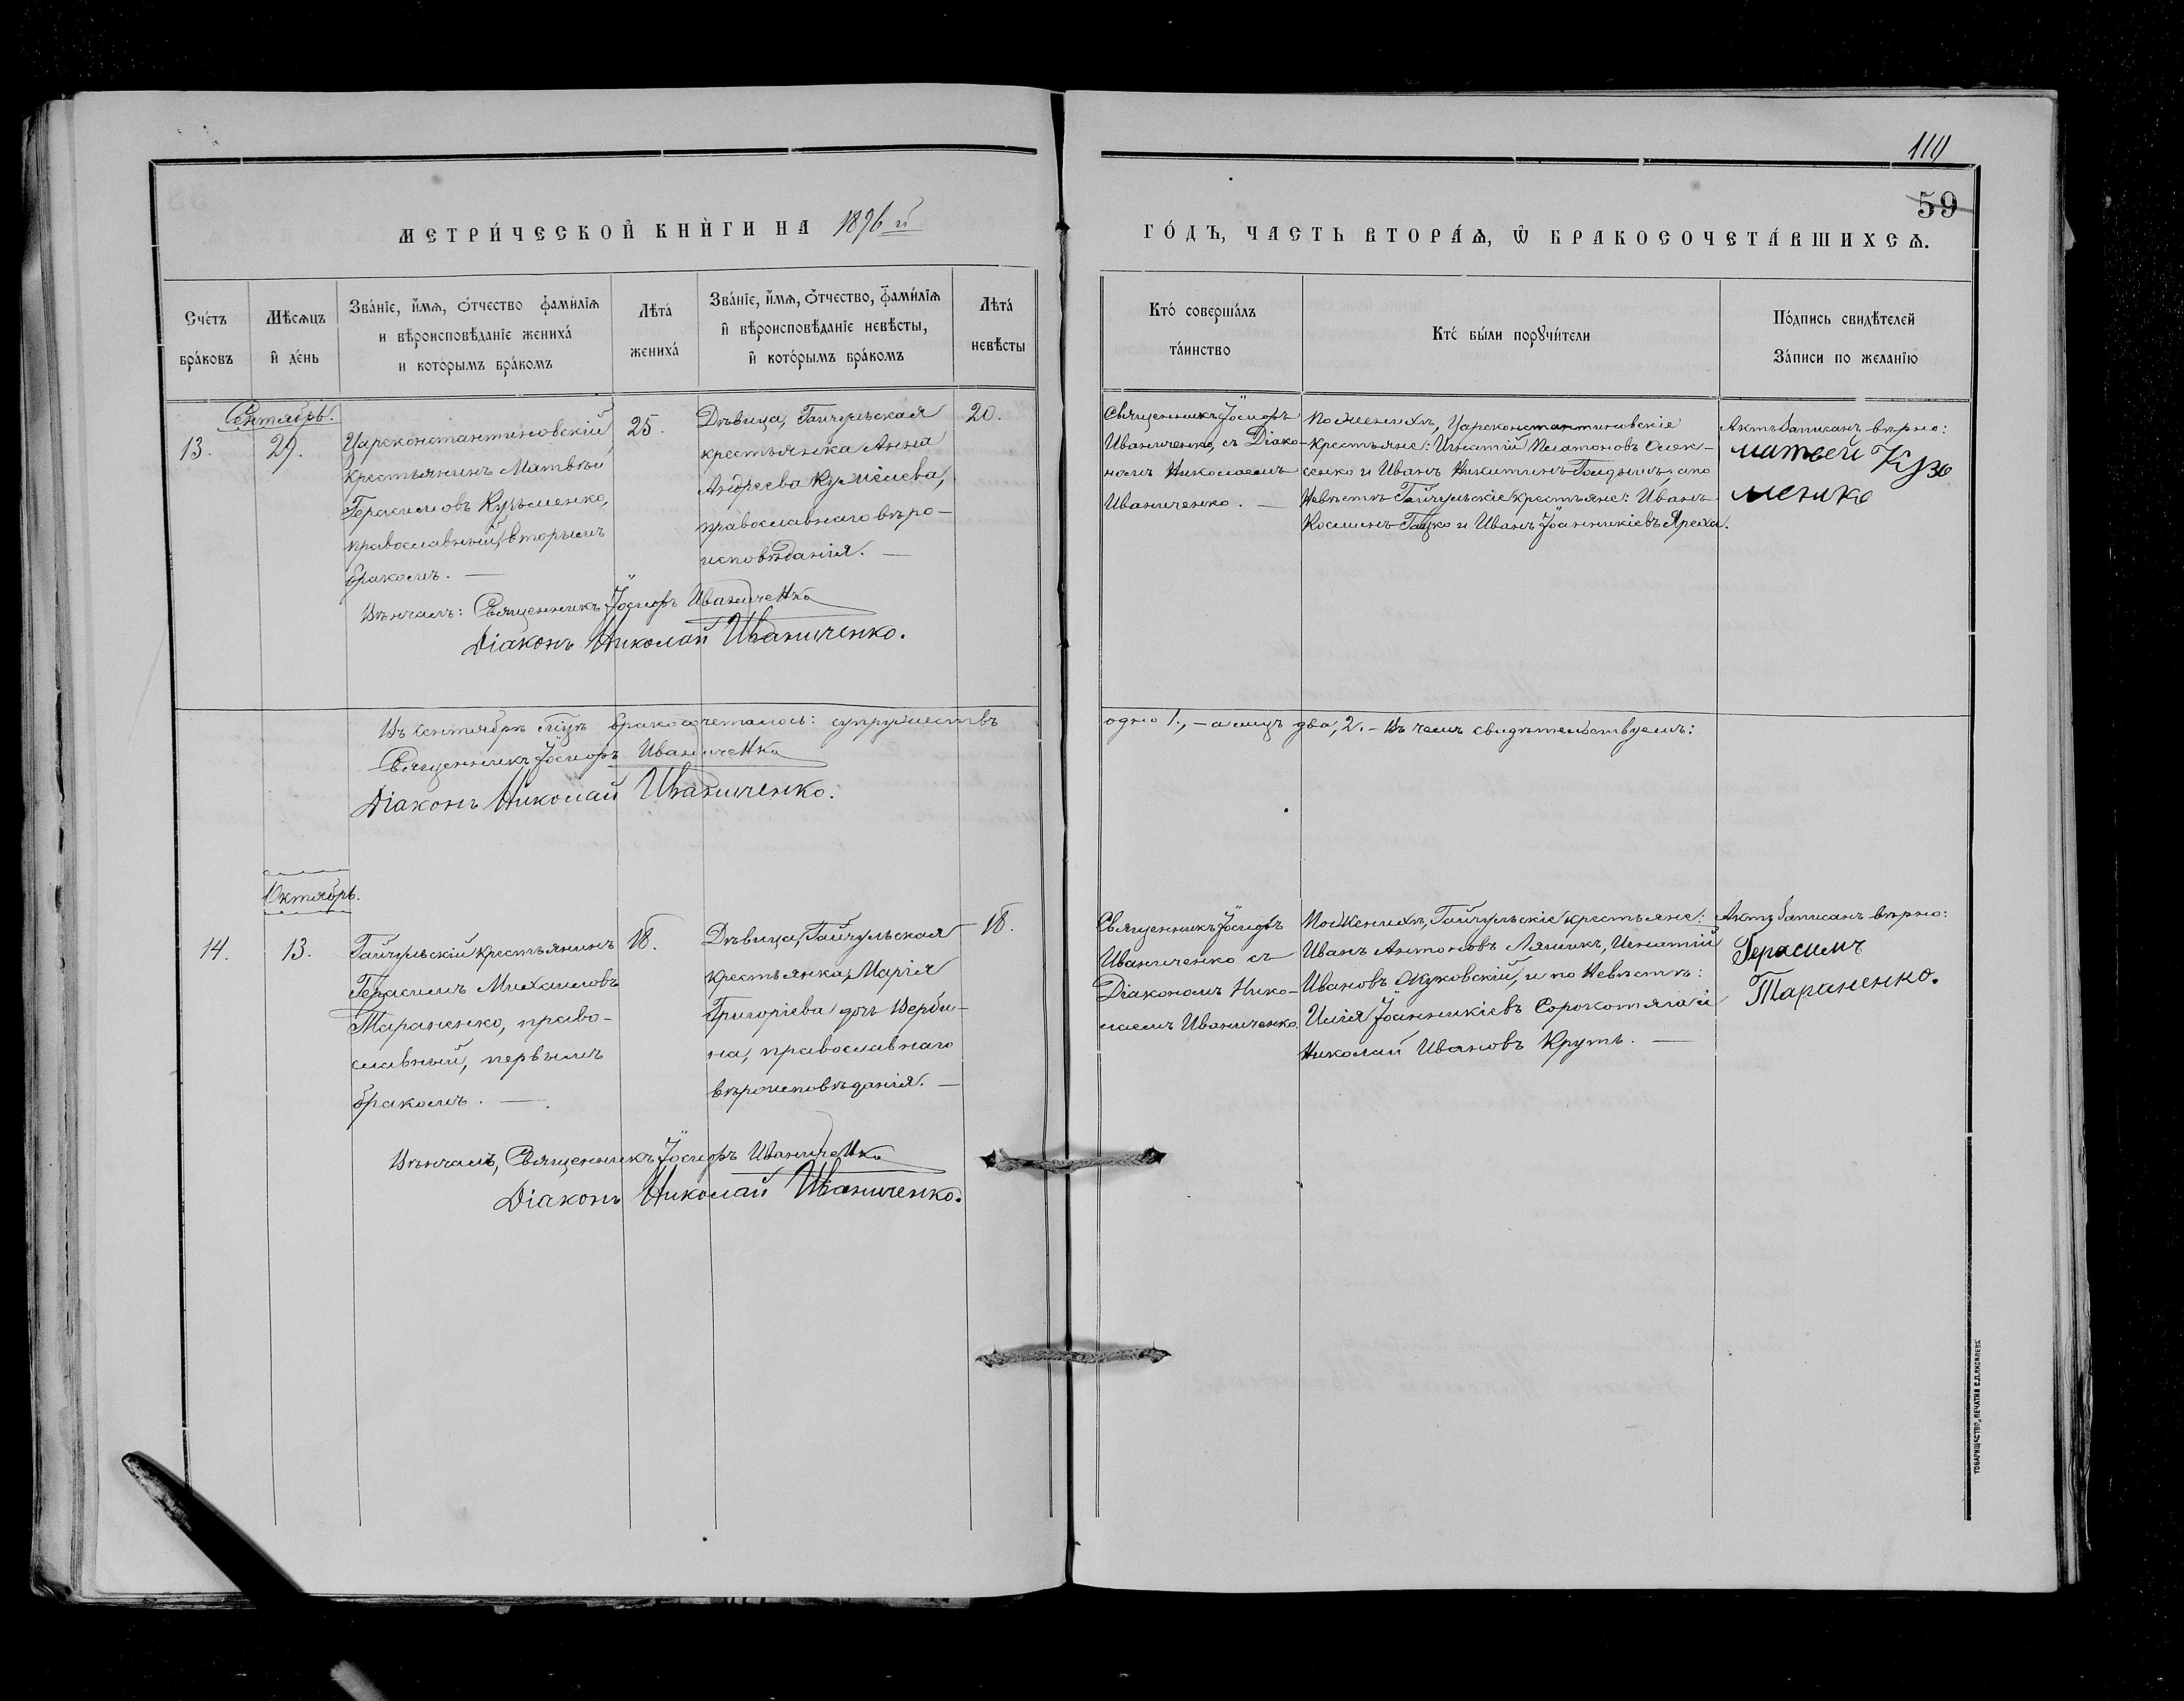 110
59
МЕТРИ́ЧЕСКОЙ КНИ́ГИ НА 1896 й
ГО́ДЪ, ЧАСТЬ ВТОРА́Ѧ, Ѿ БРАКОСОЧЕТА́ВШИХСѦ.
Сче́тъ
бра́ковъ
Мѣсѧцъ
и де́нь
Зва́нїе, и́мѧ, о́тчество фами́лїѧ
и вѣроисповѣ́данїе жениха́
и кото́рымъ бра́комъ
Лѣта́
жениха́
Зва́нїе, и́мѧ, о́тчество, фами́лїѧ
и вѣроисповѣ́данїе невѣ́сты,
и кото́рымъ бра́комъ
Лѣта́
невѣ́сты
Кто́ соверша́лъ
та́инство
Кто́ бы́ли порꙋчи́тели
По́дпись свидѣ́телей
За́писи по жела́нїю
Сентябрь.
13.
29.
Цареконстантиновскій
крестьянинъ Матвѣй
Герасимовъ Кузьменко,
православный, вторымъ
бракомъ. —
25.
Дѣвица, Гайчульская
крестьянка Анна
Андреева Курмелева,
православнаго вѣро-
исповѣданія. —
20.
Священникъ Іосифъ
Иваниченко, съ Діако-
номъ Николаемъ
Иваниченко. —
По женихѣ, Цареконстантиновскіе
крестьяне: Игнатій Платоновъ Олек-
сенко и Иванъ Никитинъ Голдымъ; а по
Невѣстѣ Гайчульскіе крестьяне: Иванъ
Косминъ Гацко и Иванъ Іоанникіевъ Яреха.
Актъ записанъ вѣрно:
матвей Кузе
менико
Вѣнчалъ: Священникъ Іосифъ Иваниченко
Діаконъ Николай Иваниченко.
Въ Сентябрѣ м̃цѣ бракосочеталось: супружествъ
одно 1., — а лицъ два, 2. — Въ чемъ свидѣтельствуемъ:
Священникъ Іосифъ Иваниченко
Діаконъ Николай Иваниченко.
Октябрь.
14.
13.
Гайчульскій крестьянинъ
Герасимъ Михаиловъ
Тараненко, право-
славный, первымъ
бракомъ. —
18.
Дѣвица, Гайчульская
крестьянка, Марія
Григоріева дочь Верби-
на, православнаго
вѣроисповѣданія. —
18.
Священникъ Іосифъ
Иваниченко съ
Діакономъ Нико-
лаемъ Иваниченко.
По Женихѣ, Гайчульскіе крестьяне:
Иванъ Антоновъ Ляшикъ, Игнатій
Ивановъ Жуковскій, и по Невѣстѣ:
Илія Іоанникіевъ Сорокотяга и
Николай Ивановъ Круть. —
Актъ записанъ вѣрно:
Герасимъ
Тараненко.
Вѣнчалъ, Священникъ Іосифъ Иваниченко
Діаконъ Николай Иваниченко.